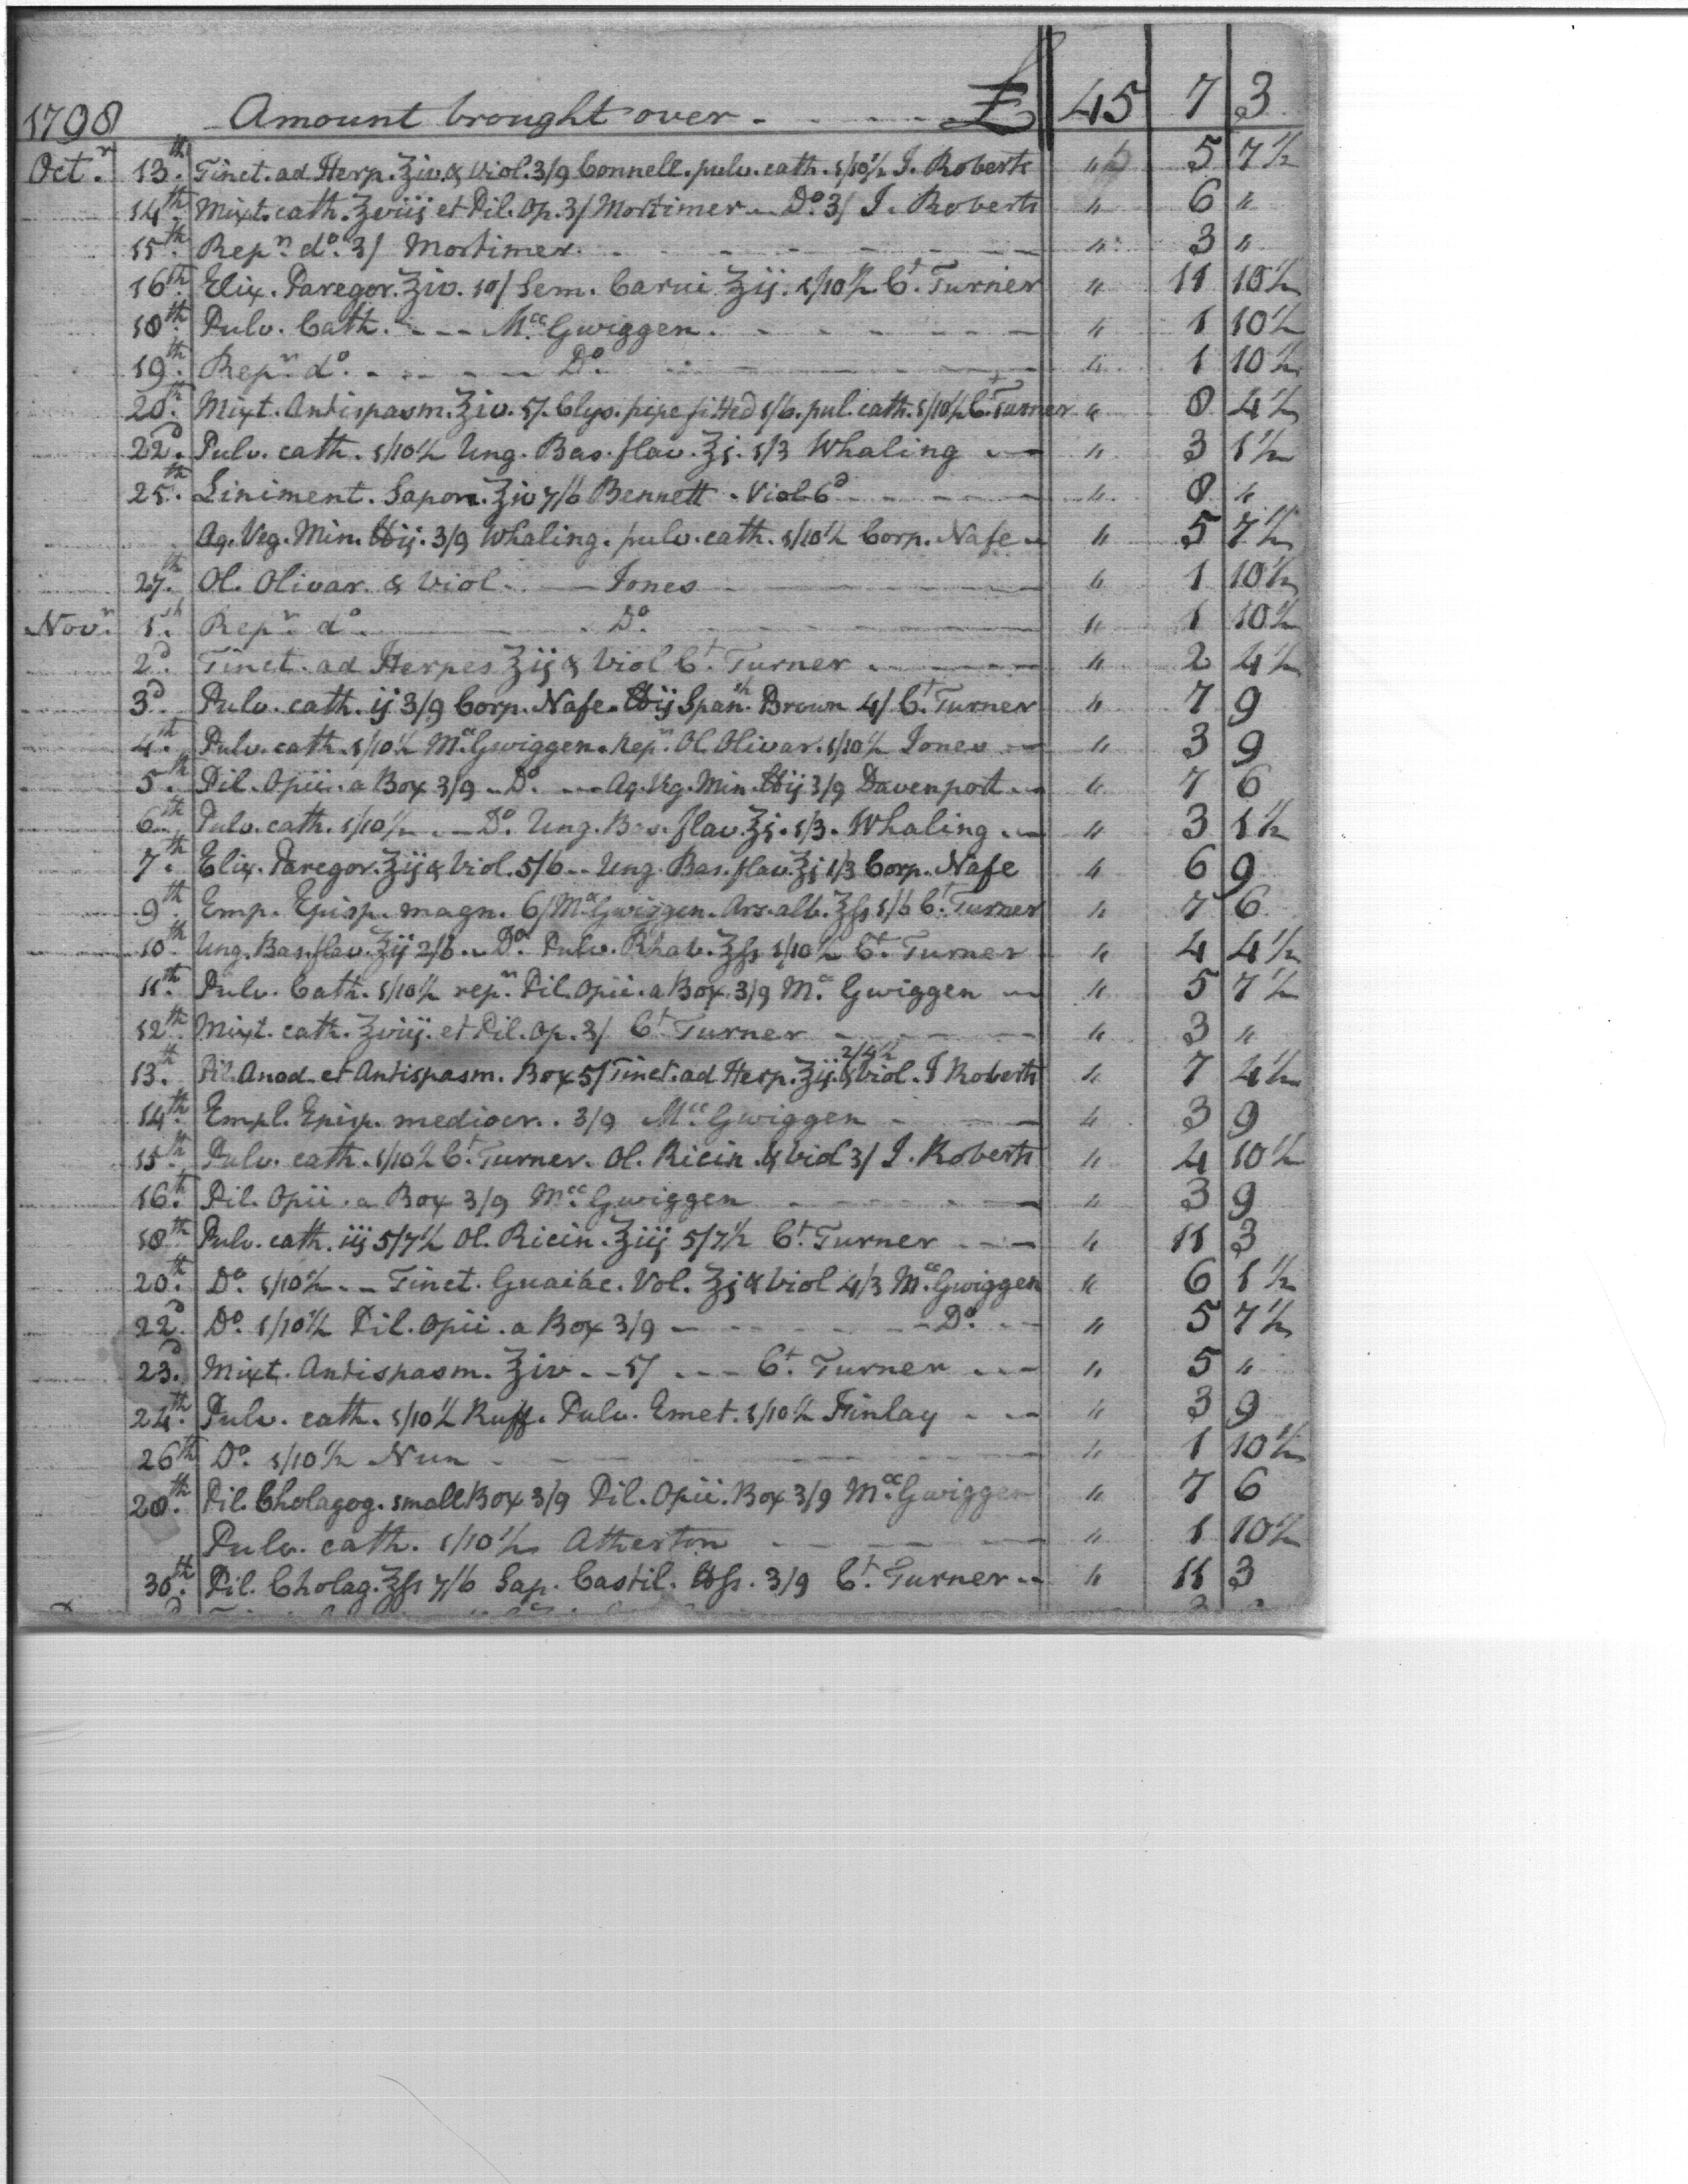 1798 Amount brought over - - - - - £ 45 7 3
Octr. 13th. Tinct. ad Herp. ℥iv. & Viol. 3/9 Connell. pulv. cath. 1/10½ J. Roberts " 5 7½
14th Mixt. cath. ℥viij et Pil. Op. 3/ Mortimer - Do. 3/ J. Roberts " 6 "
15th. Repn. do. 3/ Mortimer. " 3 "
16th. Elix. Paregor. ℥iv. 10/ Sem. Carui ℥ij. 1/10½ Ct. Turner " 11 10½
18th. Pulv. Cath. - - - Mcc.Gwiggen. " 1 10½
19th. Repn. do. - - - - Do. " 1 10½
20th. Mixt. Antispasm. ℥iv. 5/. Clys. pipe fitted 1/6. pul. cath. 1/10½ Ct. Turner " 8 4½
22d. Pulv. cath. 1/10½ Ung. Bas. flav. ℥j. 1/3 Whaling " 3 1½
25th. Liniment. Sapon. ℥iv 7/6 Bennett - Viol 6d " 8 "
Aq. Veg. Min. ℔ij. 3/9 Whaling. pulv. cath. 1/10½ Corp. Nafe " 5 7½
27th. Ol. Olivar. & Viol - - Jones " 1 10½
Novr. 1st. Repn. do. Do. " 1 10½
2d. Tinct. ad Herpes ℥ij & Viol Ct. Turner " 2 4½
3d. Pulv. cath. ij 3/9 Corp. Nafe. ℔ij Spansh. Brown 4/ Ct. Turner " 7 9
4th. Pulv. cath. 1/10½ Mcc.Gwiggen. repn. Ol. Olivar. 1/10½ Jones " 3 9
5th. Pil. Opii. a Box 3/9 - Do. - - Aq. Veg. Min. ℔ij 3/9 Davenport " 7 6
6th. Pulv. cath. 1/10½ - - Do. Ung. Bas. flav. ℥j. 1/3. Whaling " 3 1½
7th. Elix. Paregor. ℥ij & Viol. 5/6 - - Ung. Bas. flav. ℥j 1/3 Corp. Nafe " 6 9
9th. Emp. Episp. magn. 6/ Mcc.Gwiggen. Ars. alb. ℥ss 1/6 Ct. Turner " 7 6
10th Ung. Bas. flav. ℥ij 2/6 - Do. Pulv. Rhab. ℥ss 1/10½ Ct. Turner " 4 4½
11th. Pulv. Cath. 1/10½ repn. Pil. Opii. a Box 3/9 Mcc. Gwiggen " 5 7½
12th Mixt. cath. ℥viij. et Pil. Op. 3/ Ct. Turner " 3 "
13th. Pil. Anod. et Antispasm. Box 5/ Tinct. ad Herp. ℥ij. & Viol. 2/4½ J Roberts " 7 4½
14th. Empl. Episp. mediocr. . 3/9 Mcc.Gwiggen " 3 9
15th. Pulv. cath. 1/10½ Ct. Turner. Ol. Ricin. & Viol 3/ J. Roberts " 4 10½
16th. Pil. Opii. a Box 3/9 Mcc.Gwiggen " 3 9
18th Pulv. cath. iij 5/7½ Ol. Ricin. ℥iij 5/7½ Ct. Turner " 11 3
20th. Do. 1/10½ - - Tinct. Guaiac. Vol. ℥j & Viol 4/3 Mcc.Gwiggen " 6 1½
22d. Do. 1/10½ Pil. Opii. a Box 3/9 - Do. " 5 7½
23d. Mixt. Antispasm. ℥iv - - 5/ - - - Ct. Turner " 5 "
24th. Pulv. cath. 1/10½ Ruff. Pulv. Emet. 1/10½ Finlay " 3 9
26th Do. 1/10½ Nun " 1 10½
28th. Pil. Cholagog. small Box 3/9 Pil. Opii. Box 3/9 Mcc.Gwiggen " 7 6
Pulv. cath. 1/10½ Atherton " 1 10½
30th. Pil. Cholag. ℥ss 7/6 Sap. Castil. ℔ss. 3/9 Ct. Turner " 11 3